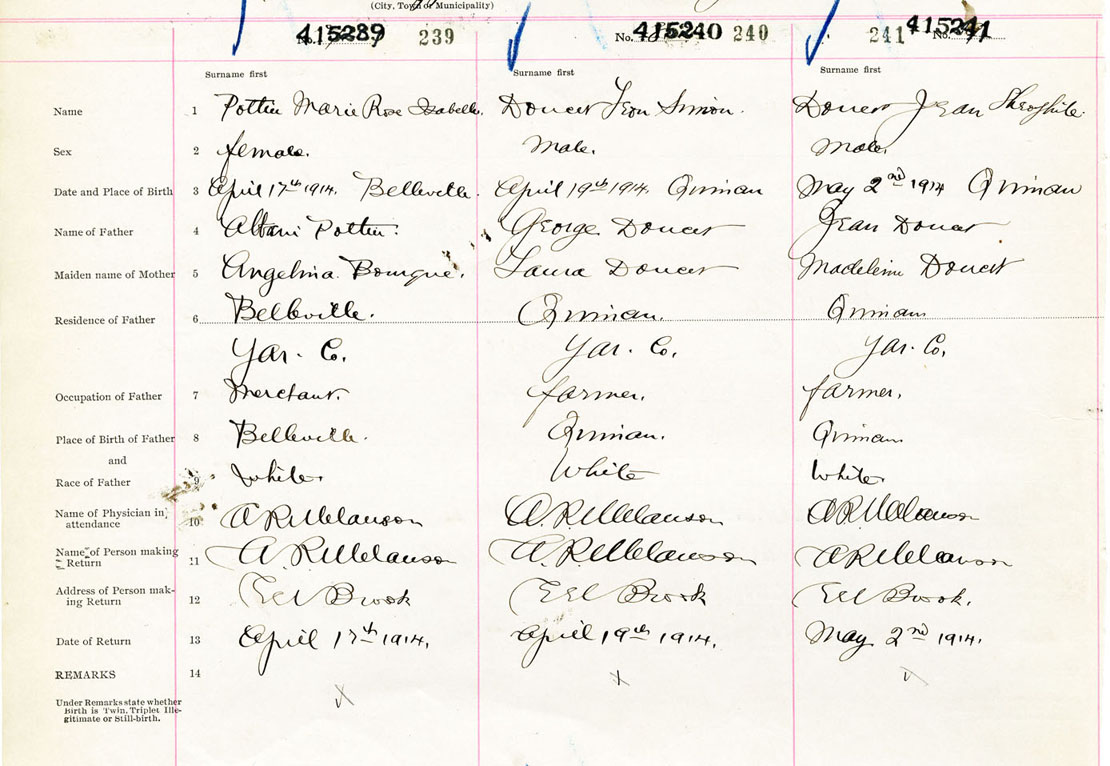 (City, Town or Municipality)
415289 239 No. 415240 240 241 No. 415241
Surname first Surname first Surname first
Name 1 Pottie Marie Rose Isabelle. Doucet Leon Simon. Doucet Jean Theophile.
Sex 2 female. Male. Male.
Date and Place of Birth 3 April 17th 1914. Belleville. April 19th 1914. Quinan May 2nd 1914 Quinan
Name of Father 4 Albani Pottie. George Doucet Jean Doucet
Maiden name of Mother 5 Angelina Bourque. Laura Doucet Madeleine Doucet
Residence of Father 6 Belleville. Quinan. Quinan
Yar. Co. Yar. Co. Yar. Co.
Occupation of Father 7 Merchant. farmer. farmer.
Place of Birth of Father 8 Belleville. Quinan. Quinan
and
Race of Father 9 White. White White
Name of Physician in 10 A R Melanson A. R. Melanson A R Melanson
attendance
Name of Person making 11 A. R Melanson A. R. Melanson A R Melanson
Return
Address of Person mak- 12 Eel Brook Eel Brook Eel Brook.
ing Return
Date of Return 13 April 17th 1914. April 19th 1914. May 2nd 1914.
REMARKS 14
Under Remarks state whether
Birth is Twin, Triplet Ille-
gitimate or Still-birth.